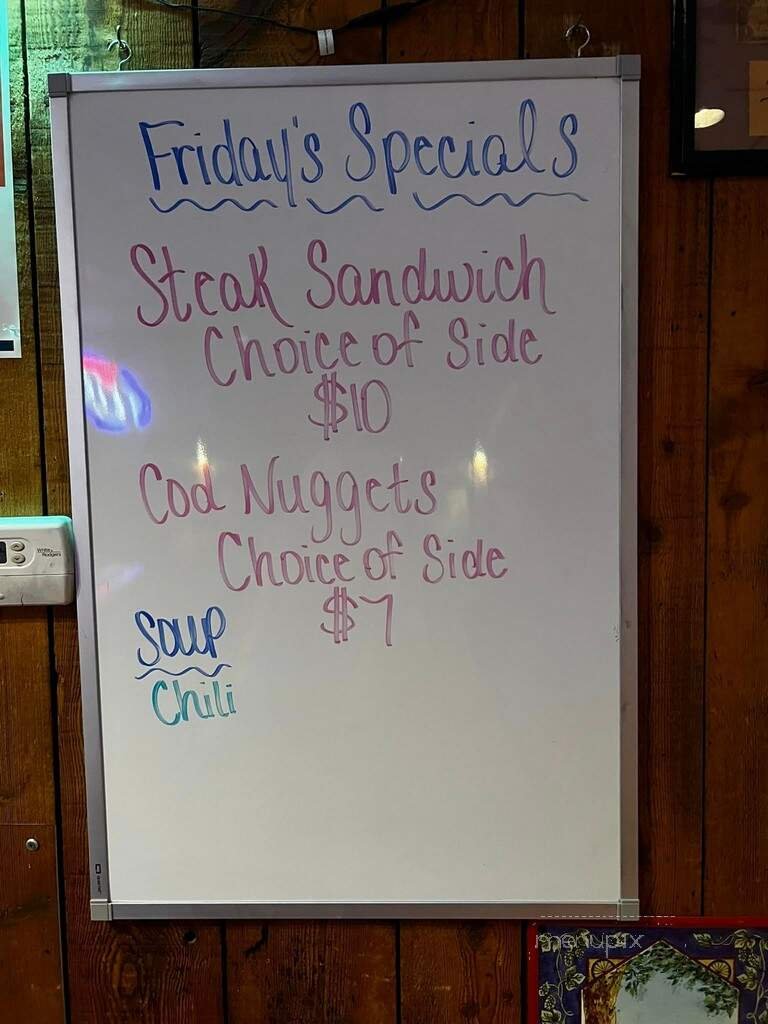 Friday's Specials
Steak Sandwich
Choice of Side
$10
Cod Nuggets
Choice of Side
$7
Soup
Chili
menupix